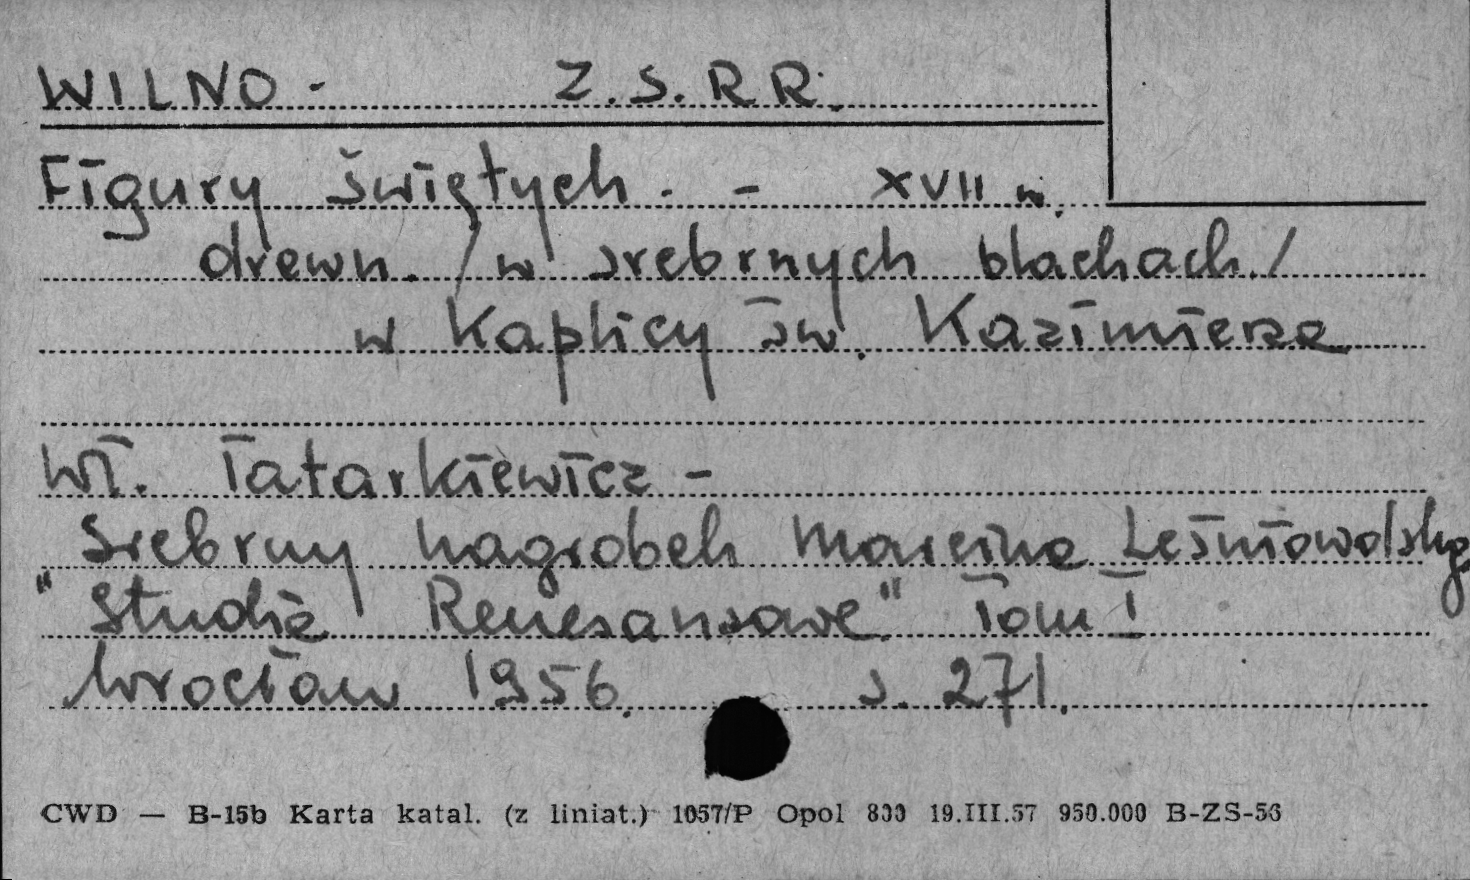 WILNO - Z.S.R.R.
Figury świętych. - XVII w.
drewn. /w srebrnych blachach./
w Kaplicy św. Kazimierza
Wł. Tatarkiewicz -
Srebrny nagrobek Marcina Leśniowolskiego
"Studia Renesansowe" Tom I
Wrocław 1956. s. 271.
CWD — B-15b Karta katal. (z liniat.) 1057/P Opol 800 19.III.57 950.000 B-ZS-56